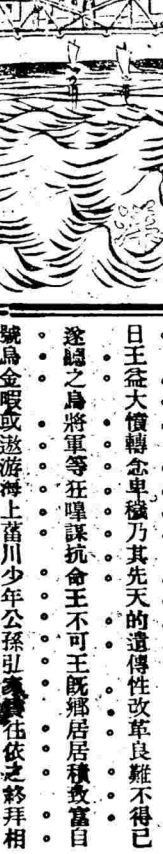 日王益大憤轉念卑穢乃其先天的遺傳性改革良難不得已
遂歸之烏將軍等狂嘷謀抗命王不可王旣鄉居居積致富自
號烏金暇或遨游海上菑川少年公孫弘家貧往依之終拜相